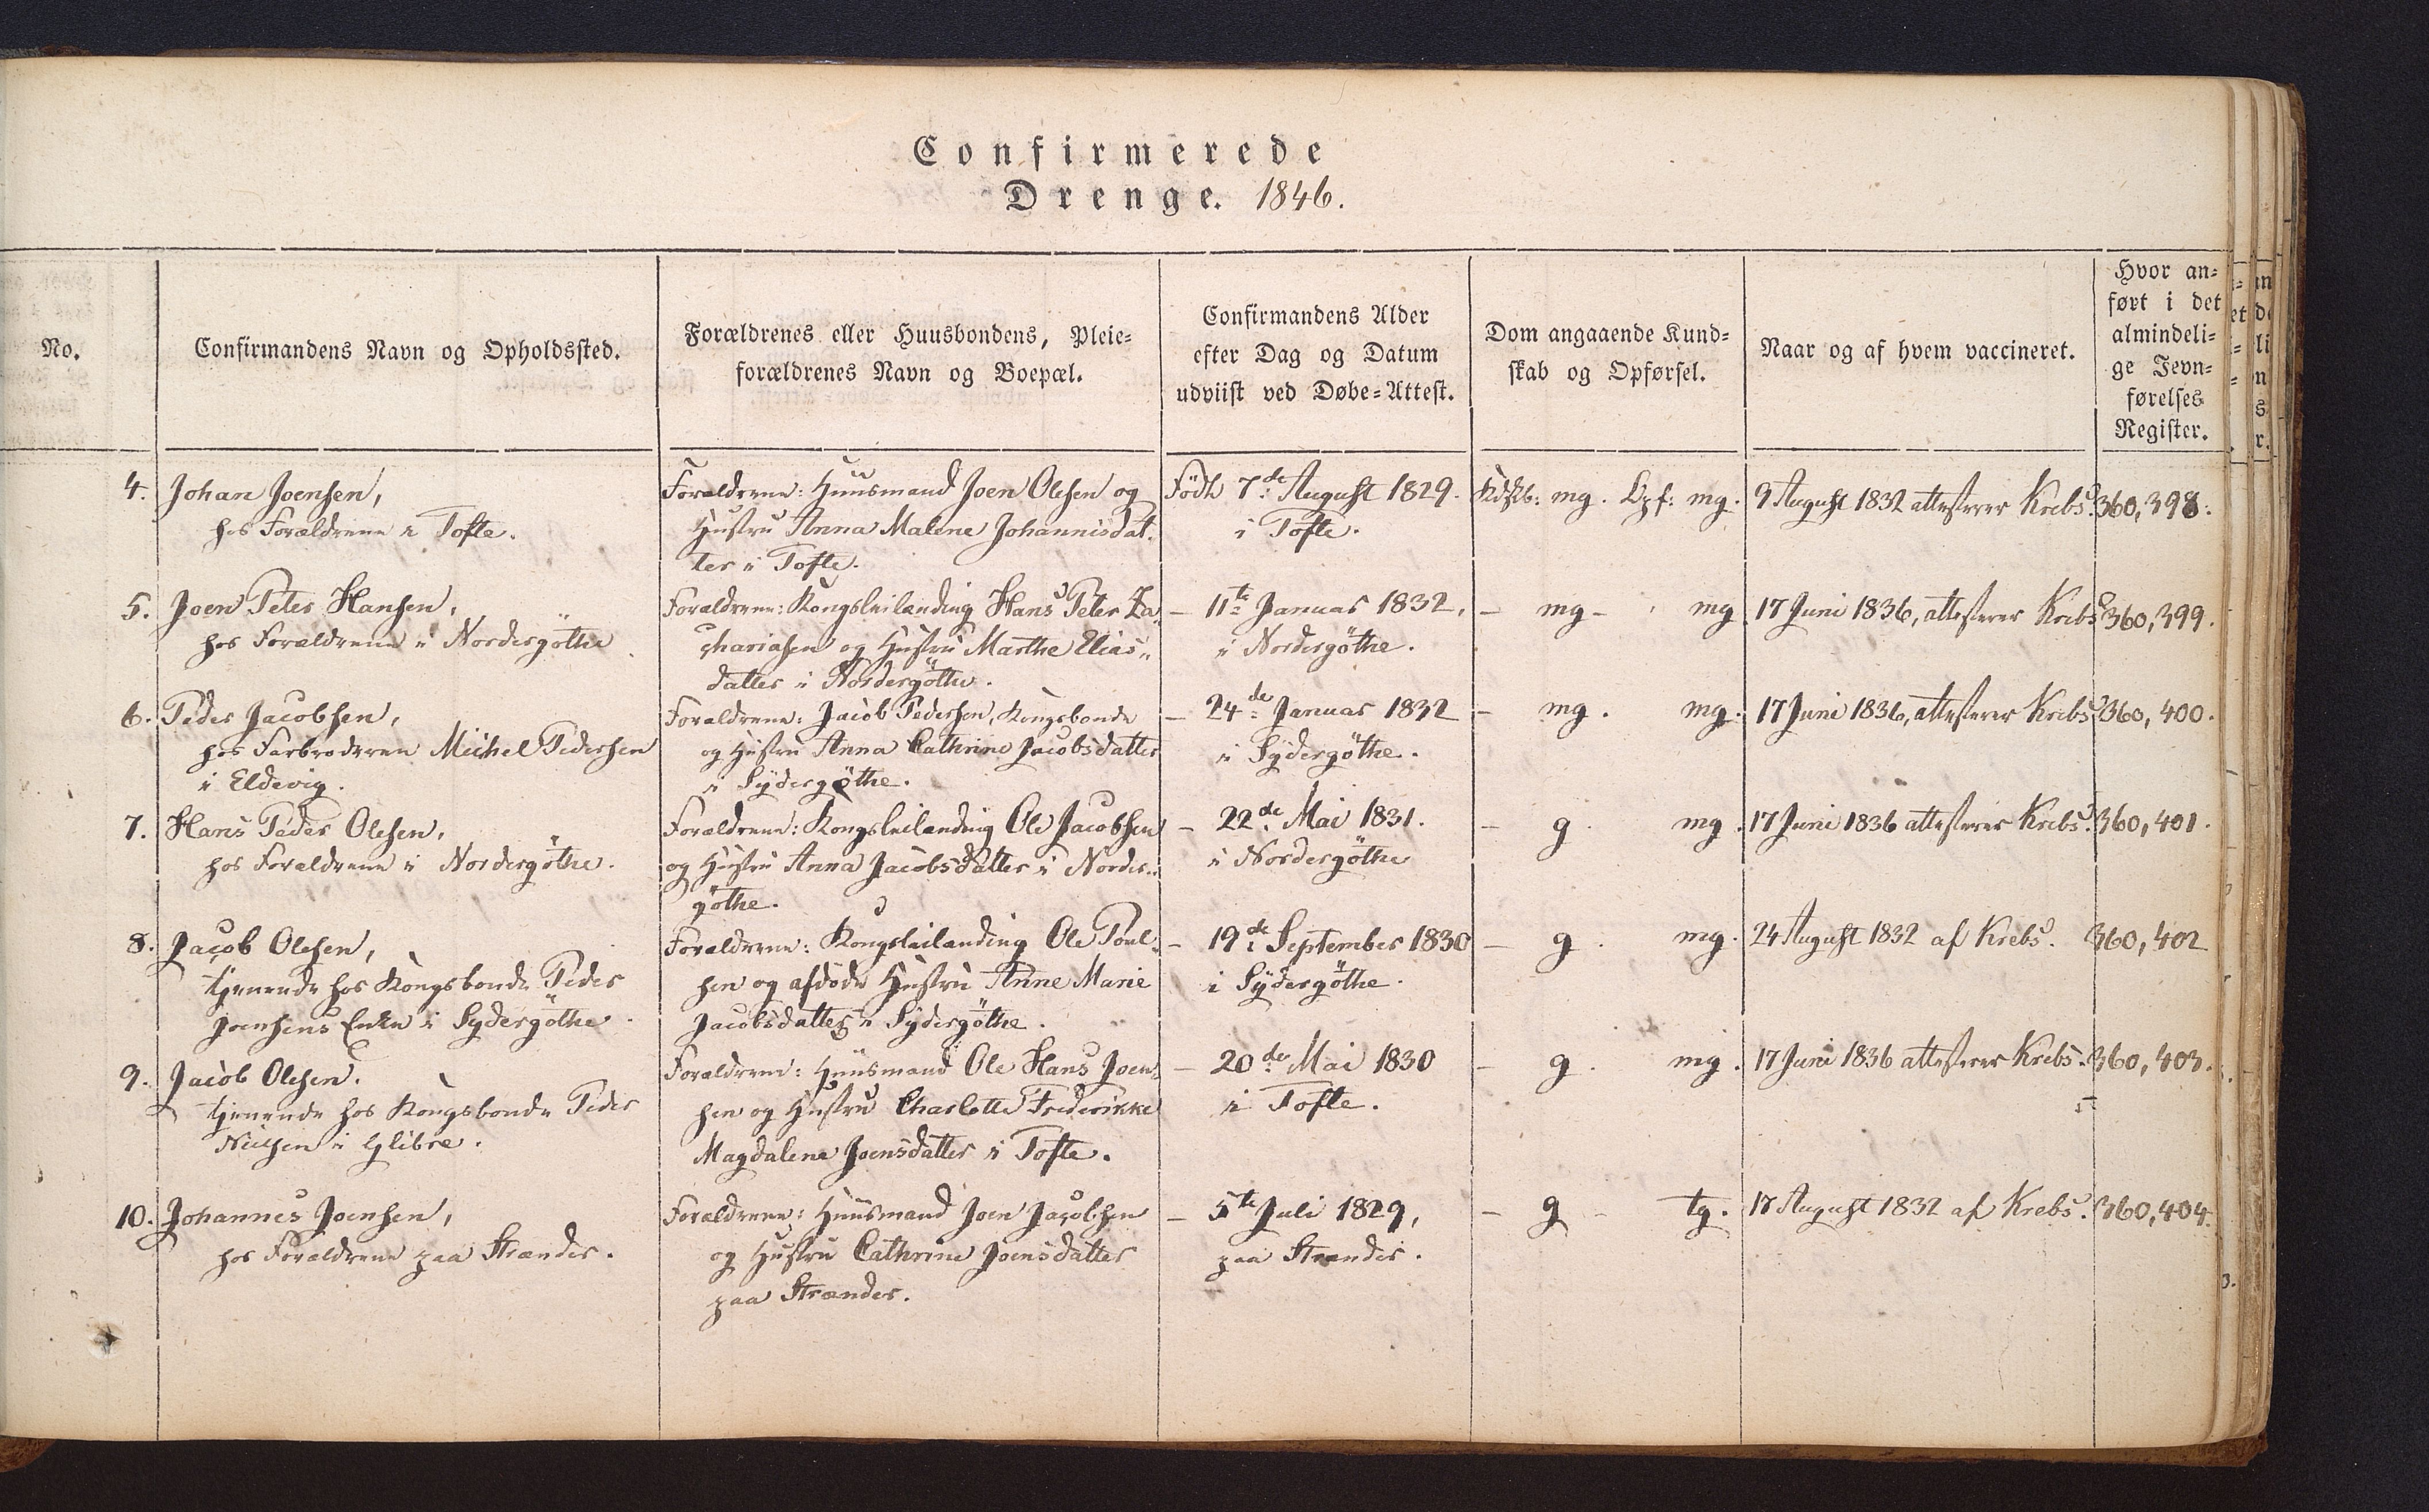 Confirmerede
Drenge. 1846.
No.
Confirmandens Navn og Opholdssted.
Forældrenes eller Huusbondens, Pleie-
forældrenes Navn og Boepæl.
Confirmandens Alder
efter Dag og Datum
udviist ved Døbe-Attest.
Dom angaaende Kund-
skab og Opførsel.
Naar og af hvem vaccineret.
Hvor an-
ført i det
almindeli-
ge Jevn-
førelses
Register.
4.
Johan Joensen,
hos Forældrene i Tofte.
Forældrene: Huusmand Joen Olesen og
Hustru Anna Malene Johannisdat-
ter i Tofte.
Födt 7de August 1829.
i Tofte.
Kdskb: mg. Opf: mg.
9 August 1832 attesterer Krebs.
360, 398.
5.
Joen Peter Hansen,
hos Forældrene i Nordergöthe
Forældrene: Kongsleilænding Hans Peter Za-
chariasen og Hustru Marthe Elias-
datter i Nordergöthe.
- 11te Januar 1832,
i Nordergöthe.
- mg - mg
17 Juni 1836, attesterer Krebs
360, 399.
6.
Peder Jacobsen,
hos Farbroderen Michel Pedersen
i Eldevig.
Forældrene: Jacob Pedersen, Kongsbonde
og Hustru Anna Cathrine Jacobsdatter
i Sydergøthe.
- 24de Januar 1832
i Sydergöthe.
- mg. mg.
17 Juni 1836, attesterer Krebs
360, 400.
7.
Hans Peder Olesen,
hos Forældrene i Nordergöthe.
Forældrene: Kongsleilænding Ole Jacobsen
og Hustru Anna Jacobsdatter i Norder-
göthe.
- 22de Mai 1831.
i Nordergöthe
- g. mg.
17 Juni 1836 attesterer Krebs.
360, 401.
8.
Jacob Olesen,
tjenende hos Kongsbonde Peder
Joensens Enke i Sydergöthe.
Forældrene: Kongsleilænding Ole Poul-
sen og afdöde Hustru Anne Marie
Jacobsdatter i Sydergöthe.
- 19de September 1830
i Sydergöthe.
- g. mg.
24 August 1832 af Krebs.
360, 402
9.
Jacob Olesen.
tjenende hos Kongsbonde Peder
Nielsen i Glibre.
Forældrene: Huusmand Ole Hans Joen-
sen og Hustru Charlotte Frederikke
Magdalena Joensdatter i Tofte.
- 20de Mai 1830
i Tofte.
- g. mg.
17 Juni 1836 attesterer Krebs.
360, 403.
10.
Johannes Joensen,
hos Forældrene paa Strænder.
Forældrene: Huusmand Joen Jacobsen
og Hustru Cathrine Joensdatter
paa Strænder.
- 5te Juli 1829,
paa Strænder.
- g - tg.
17 August 1832 af Krebs.
360, 404.